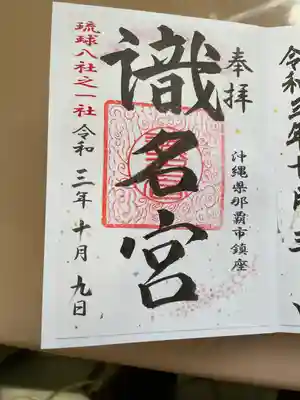 奉拝
沖縄県那覇市鎮座
識名宮
琉球八社之一社
令和三年十月九日
令和三年十月